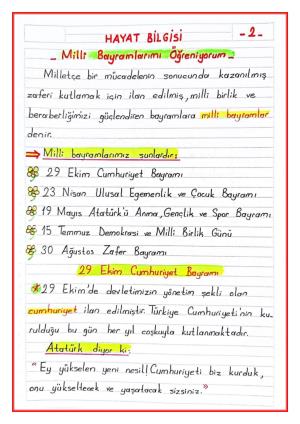 HAYAT BİLGİSİ
-2-
- Milli Bayramlarımı Öğreniyorum -
Milletçe bir mücadelenin sonucunda kazanılmış
zaferi kutlamak için ilan edilmiş, milli birlik ve
beraberliğimizi güçlendiren bayramlara milli bayramlar
denir.
⇒ Milli bayramlarımız şunlardır;
29 Ekim Cumhuriyet Bayramı
23 Nisan Ulusal Egemenlik ve Çocuk Bayramı
19 Mayıs Atatürk'ü Anma, Gençlik ve Spor Bayramı
15 Temmuz Demokrasi ve Milli Birlik Günü
30 Ağustos Zafer Bayramı
29 Ekim Cumhuriyet Bayramı
* 29 Ekim'de devletimizin yönetim şekli olan
cumhuriyet ilan edilmiştir. Türkiye Cumhuriyeti'nin ku-
rulduğu bu gün her yıl coşkuyla kutlanmaktadır.
Atatürk diyor ki;
"Ey yükselen yeni nesil! Cumhuriyeti biz kurduk,
onu yükseltecek ve yaşatacak sizsiniz."